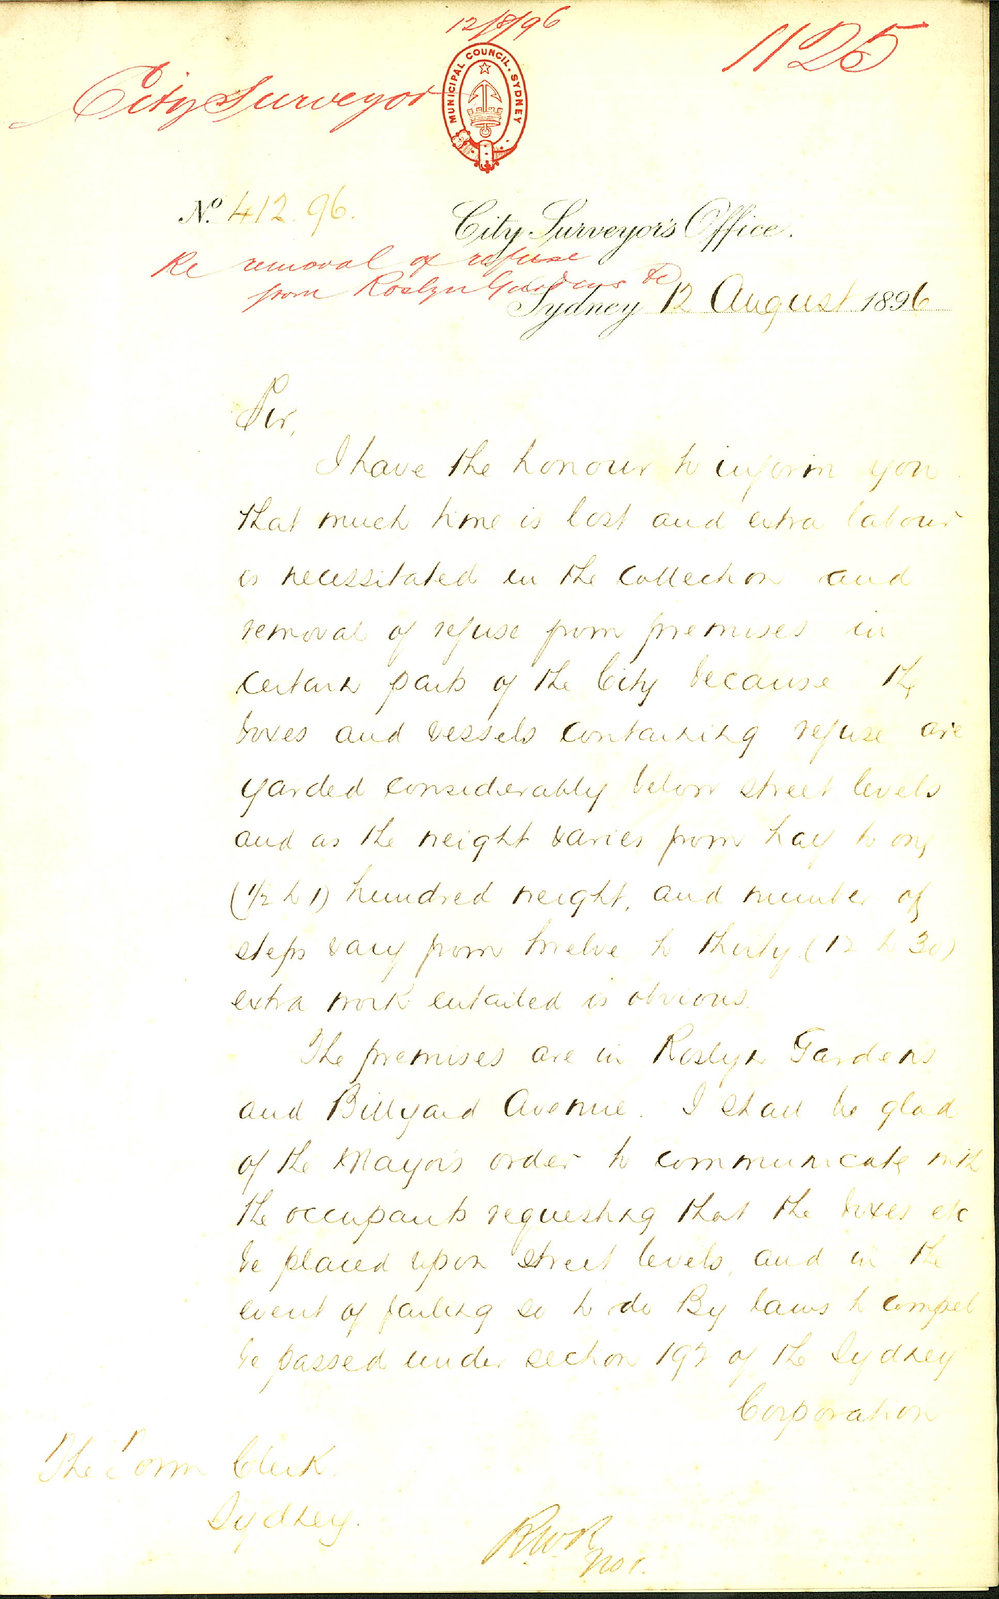 12/8/96
1125
City Surveyor
MUNICIPAL COUNCIL. SYDNEY
No. 412.96.
City Surveyor's Office.
Re removal of refuse
from Roslyn Gardens &c
Sydney 12 August 1896
Sir,
I have the honour to inform you
that much time is lost and extra labour
is necessitated in the collection and
removal of refuse from premises in
certain parts of the City because the
boxes and vessels containing refuse are
yarded considerably below street levels
and as the weight varies from half to one
(1/2 to 1) hundred weight, and number of
steps vary from twelve to thirty (12 to 30)
extra work entailed is obvious.
The premises are in Roslyn Gardens
and Billyard Avenue. I shall be glad
of the Mayor's order to communicate with
the occupants requesting that the boxes etc
be placed upon street levels, and in the
event of failing so to do By laws to compel
be passed under section of the Sydney
Corporation
The Town Clerk.
Sydney.
R.W.R
No 1.